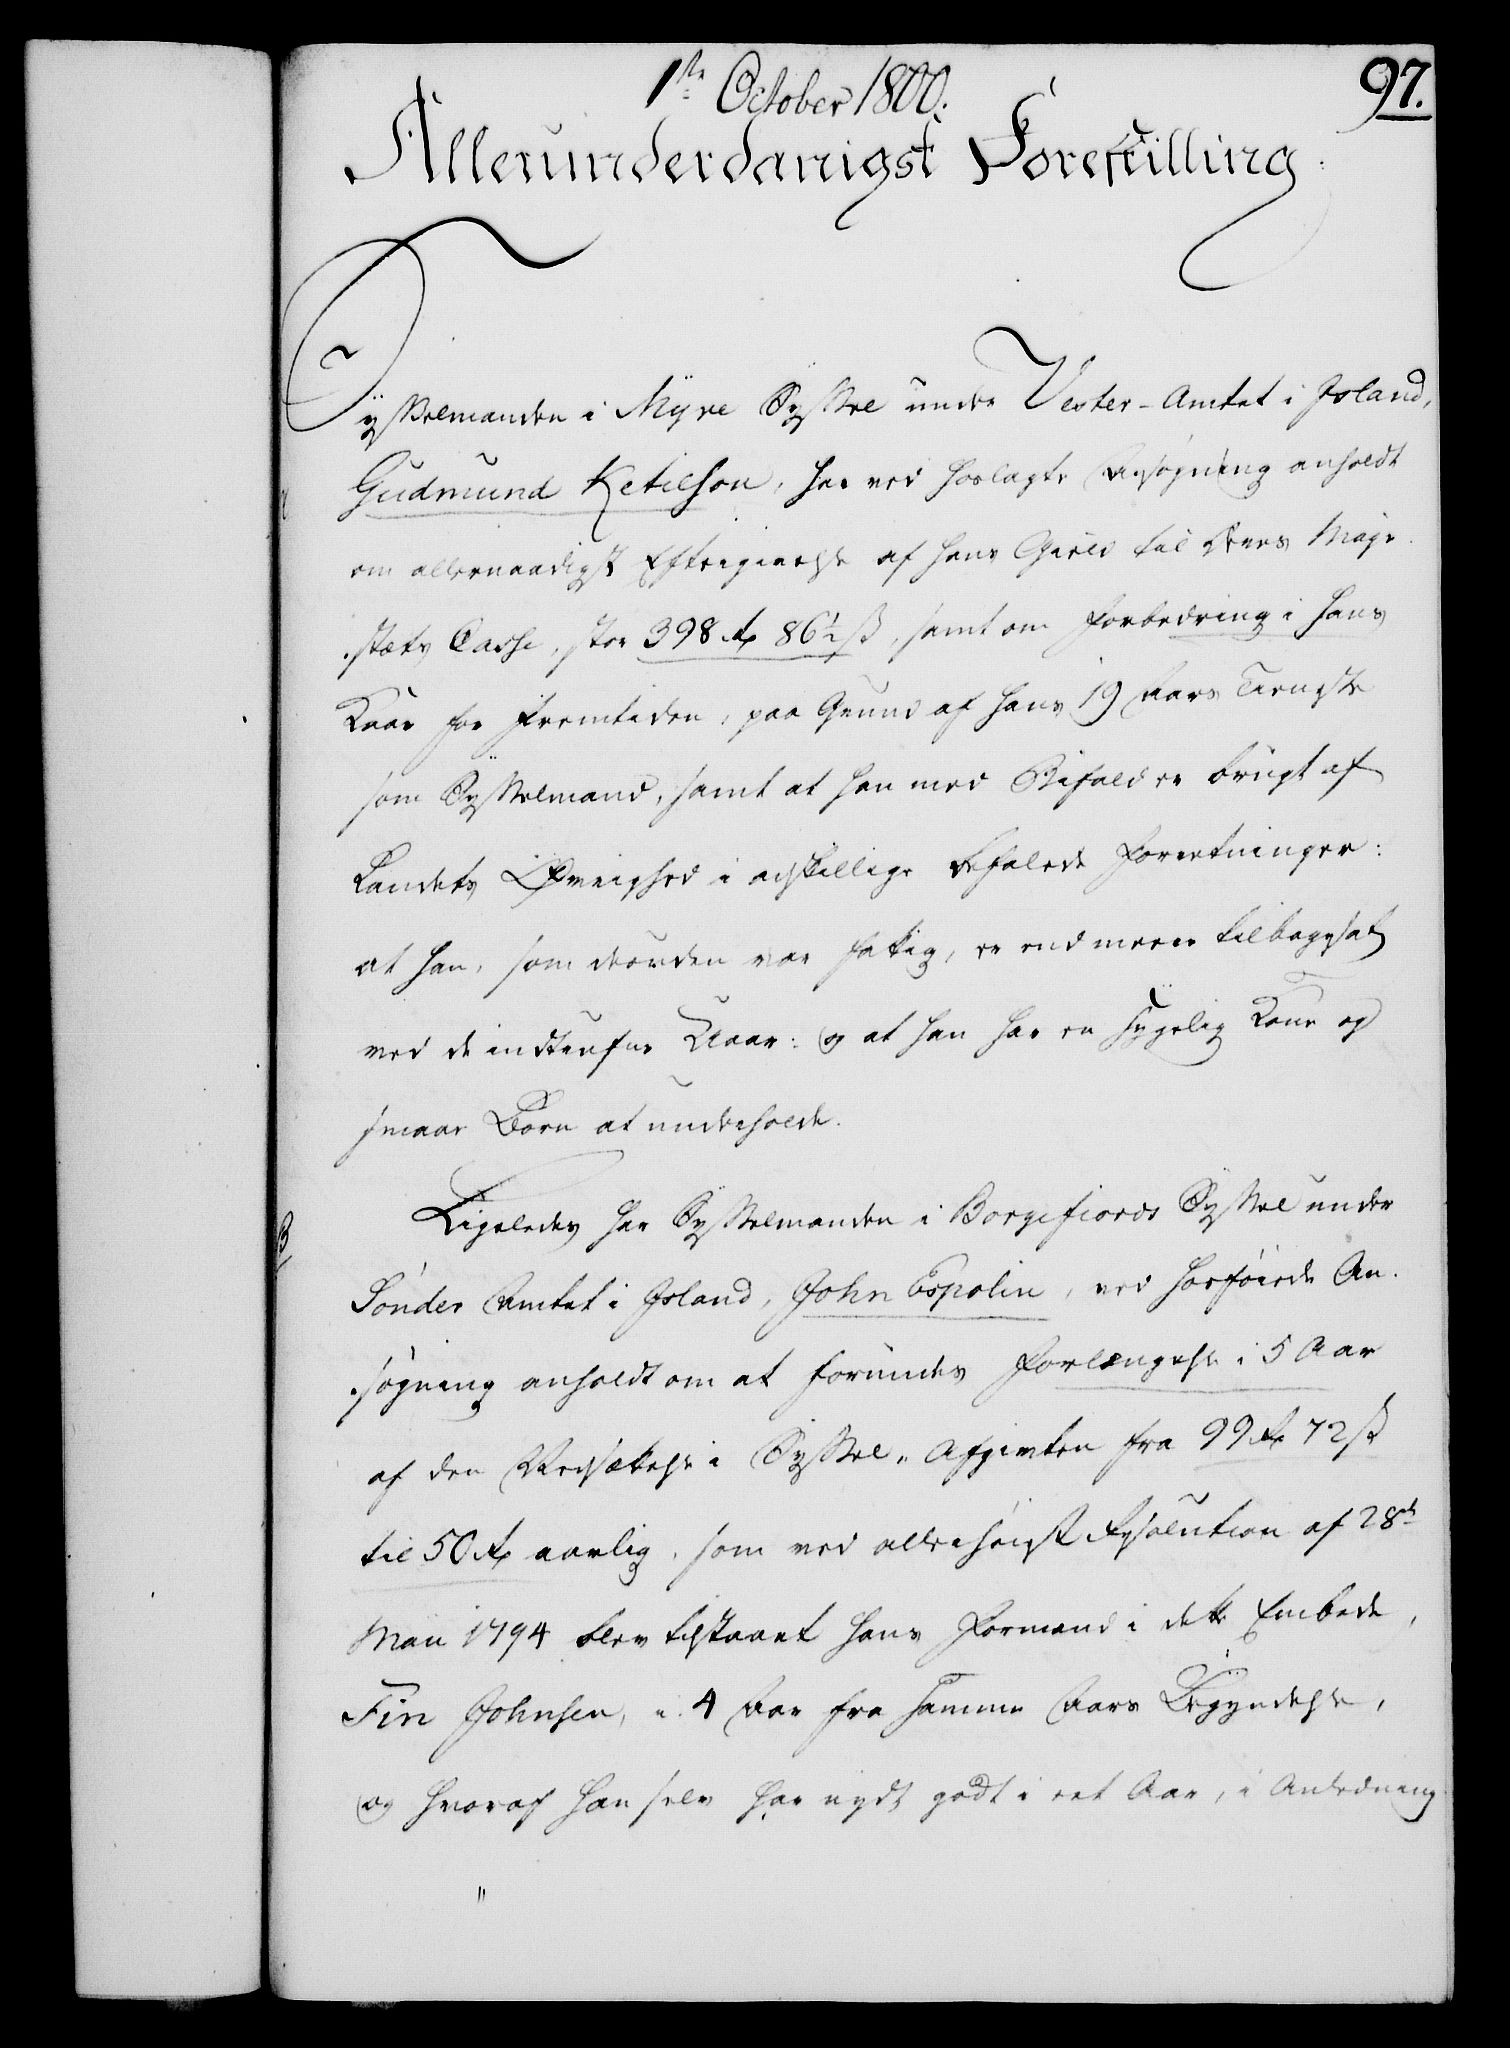 1ste October 1800.
97.
Allerunderdanigst Forestilling.
Sysselmanden i Myre Syssel under Vester-Amtet i Island,
Gudmund Ketilson, har ved hoslagte Ansøgning anholdt
om allernaadigst Eftergivelse af hans Gield til Deres Maje-
stæts Casse, stor 398 rd 86½ ß, samt om Forbedring i hans
Kaar for Fremtiden, paa Grund af hans 19 Aars Tieneste
som Sysselmand, samt at han med Bifald er brugt af
Landets Øvrighed i adskillige befalede Forretninger:
at han, som desuden var fattig, er end meere tilbagesat
ved de indtrufne Uaar: og at han har en sygelig Kone og
smaae Børn at underholde.
B
Ligeledes har Sysselmanden i Borgefiords Syssel under
Sønder Amtet i Island, John Espolin, ved hosføiede An-
søgning anholdt om at forundes Forlængelse i 5 Aar
af den Nedsættelse i Syssel-Afgivten fra 99 rd 72 ß
til 50 rd aarlig, som ved allerhøieste Resolution af 28de
Maii 1794 blev tilstaaet hans Formand i dette Embede,
Fin Johnsen, i 4 Aar fra samme Aars Begyndelse,
og hvoraf han selv har nydt godt i eet Aar, i Anledning
"